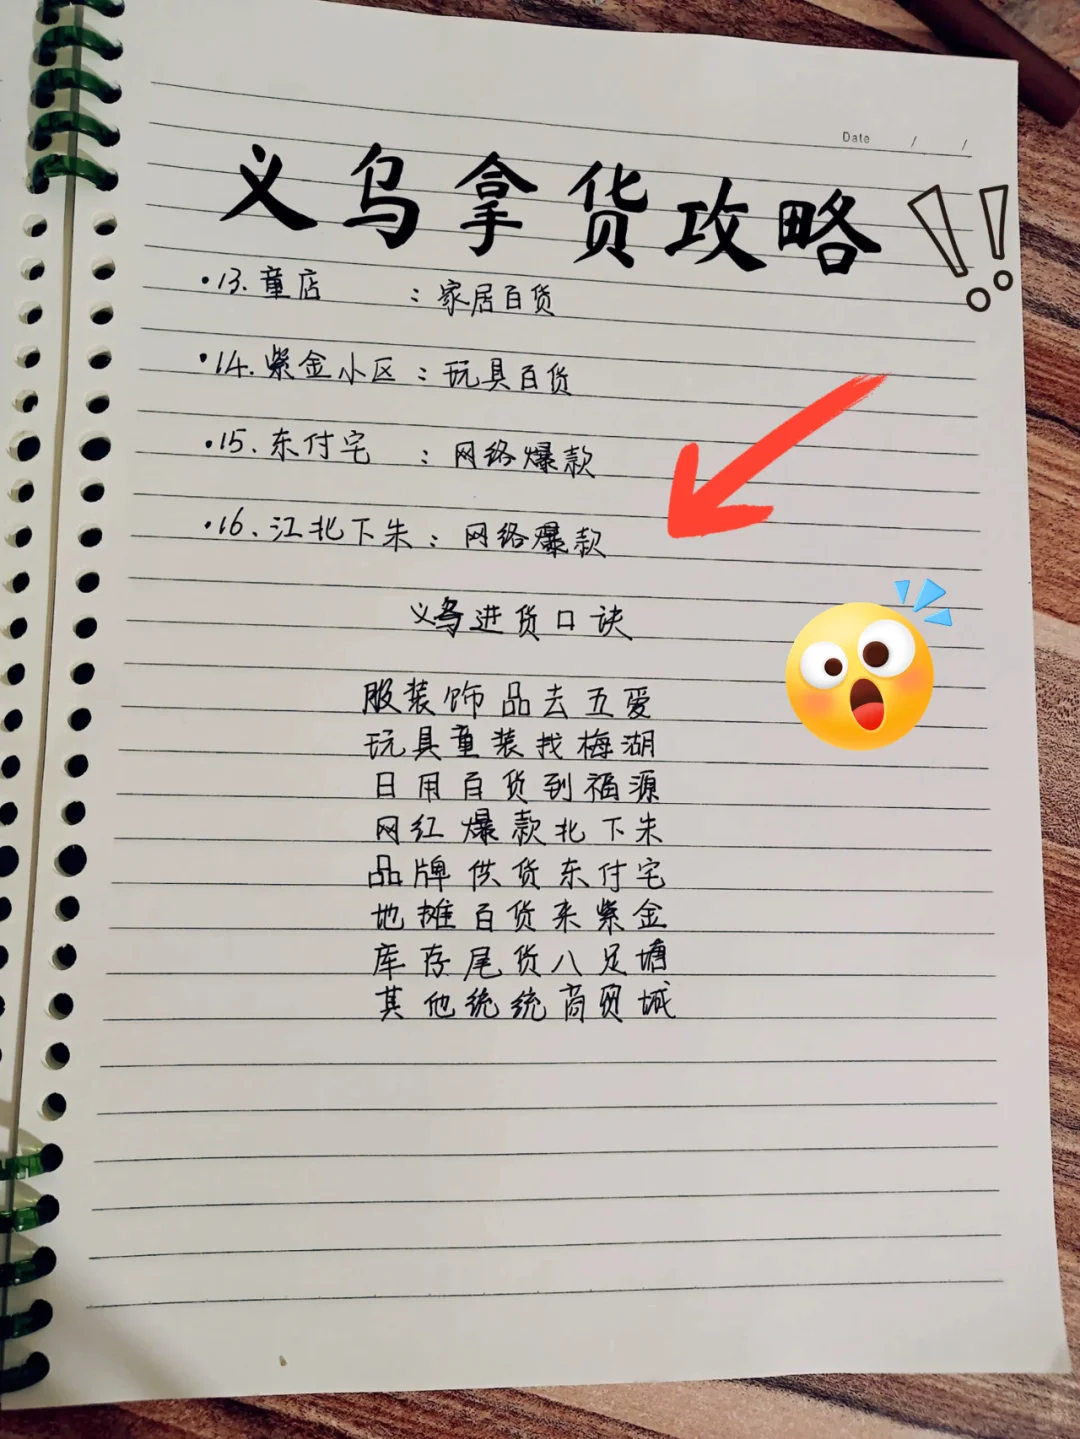 Date / /
义乌拿货攻略!!
·13.童店 :家居百货
·14.紫金小区:玩具百货
·15.东付宅 :网络爆款
·16.江北下朱:网络爆款
义乌进货口诀
服装饰品去五爱
玩具童装找梅湖
日用百货到福源
网红爆款北下朱
品牌供货东付宅
地摊百货来紫金
库存尾货八足塘
其他统统商贸城